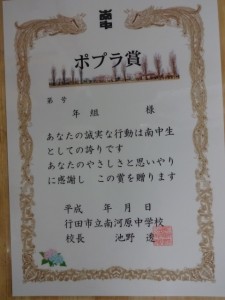 南中
ポプラ賞
第 号
年 組 様
あなたの誠実な行動は南中生
としての誇りです
あなたのやさしさと思いやり
に感謝し この賞を贈ります
平成 年 月 日
行田市立南河原中学校
校長 池野 透